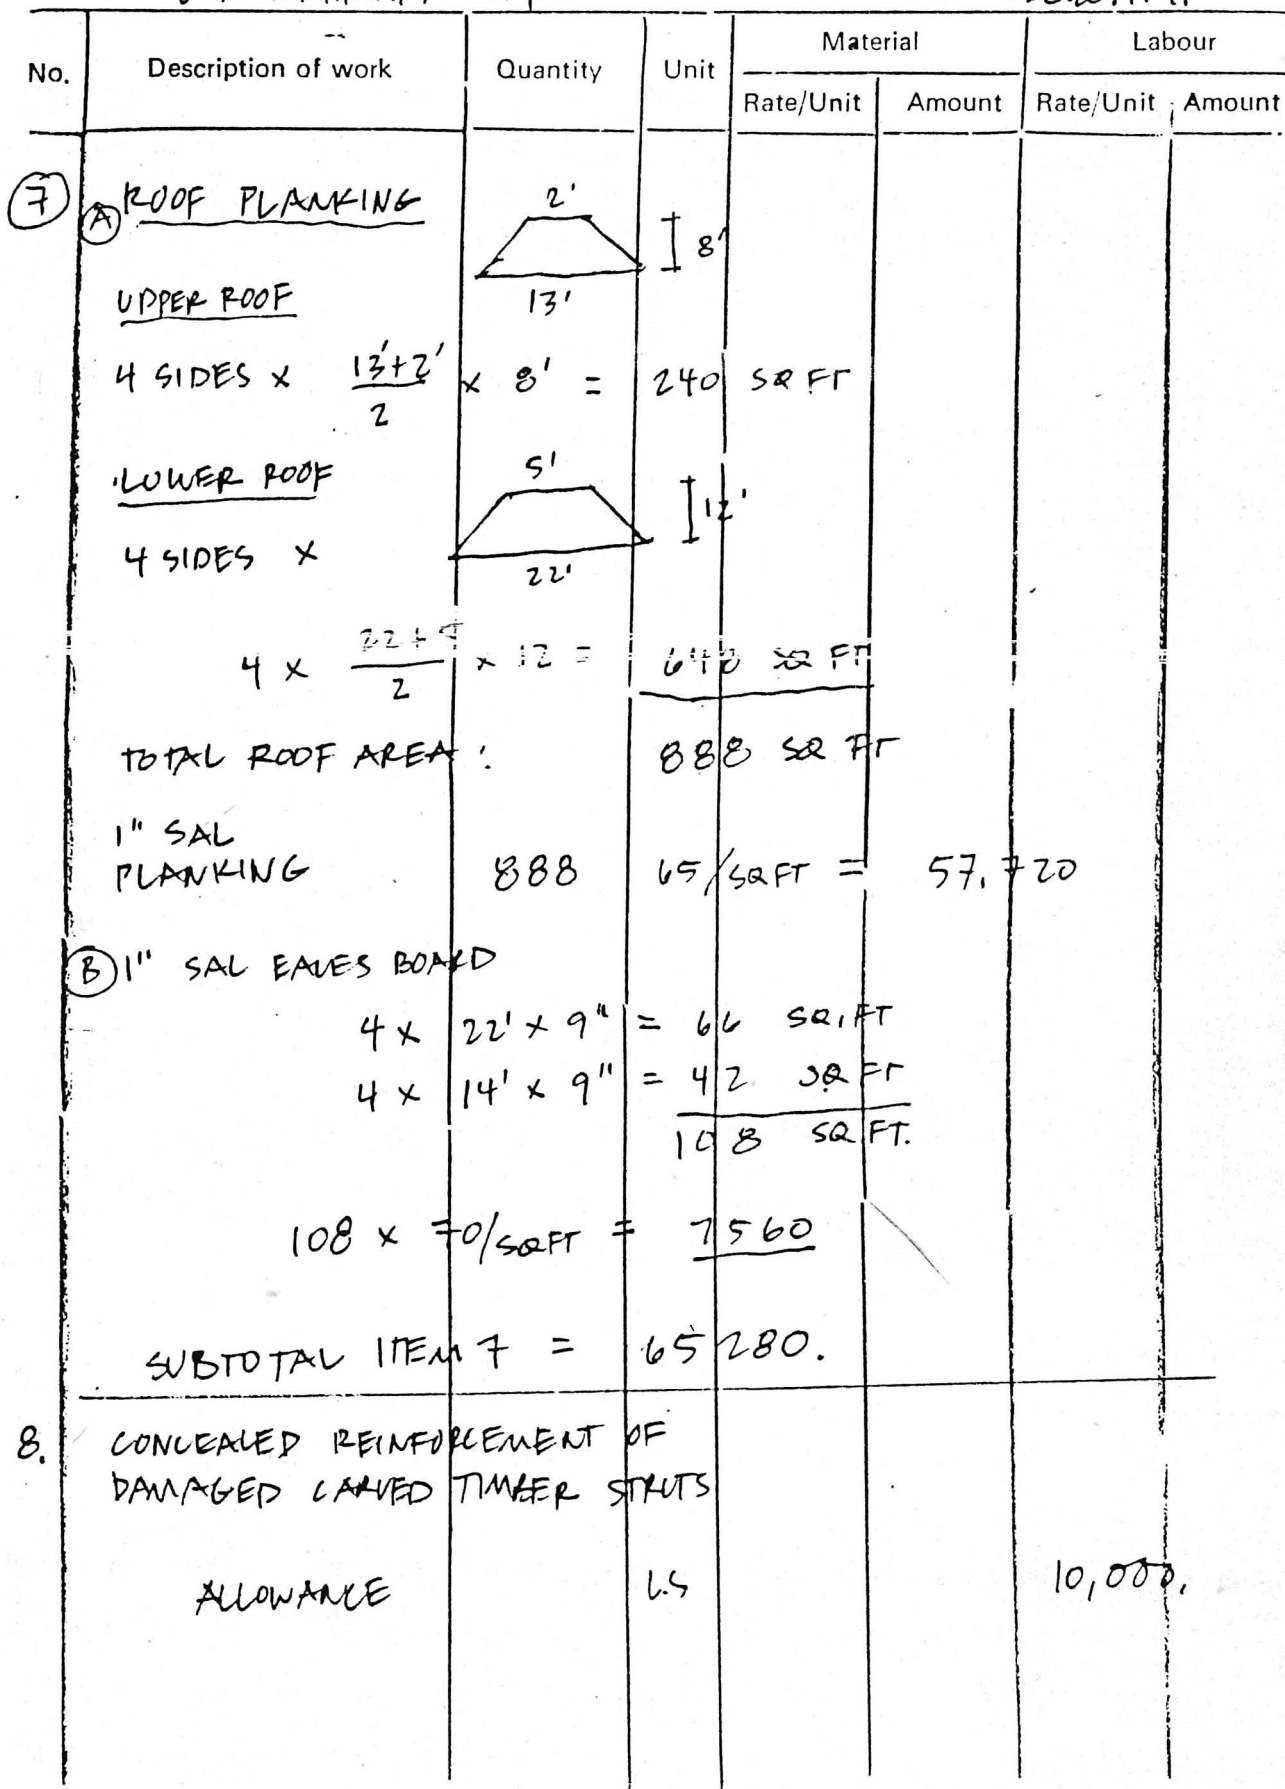 Material Labour
No. Description of work Quantity Unit
Rate/Unit Amount Rate/Unit Amount
7 A ROOF PLANKING 2'
8'
13'
UPPER ROOF
4 SIDES x 13'+2' / 2 x 8' = 240 SQ FT
LOWER ROOF 5'
12'
4 SIDES x
22'
4 x 22+5 / 2 x 12 = 648 SQ FT
TOTAL ROOF AREA : 888 SQ FT
1" SAL
PLANKING 888 65/SQFT = 57,720
B 1" SAL EAVES BOARD
4 x 22' x 9" = 66 SQ.FT
4 x 14' x 9" = 42 SQ FT
108 SQ FT.
108 x 70/SQFT = 7560
SUBTOTAL ITEM 7 = 65280.
8. CONCEALED REINFORCEMENT OF
DAMAGED CARVED TIMBER STRUTS
ALLOWANCE L.S 10,000.